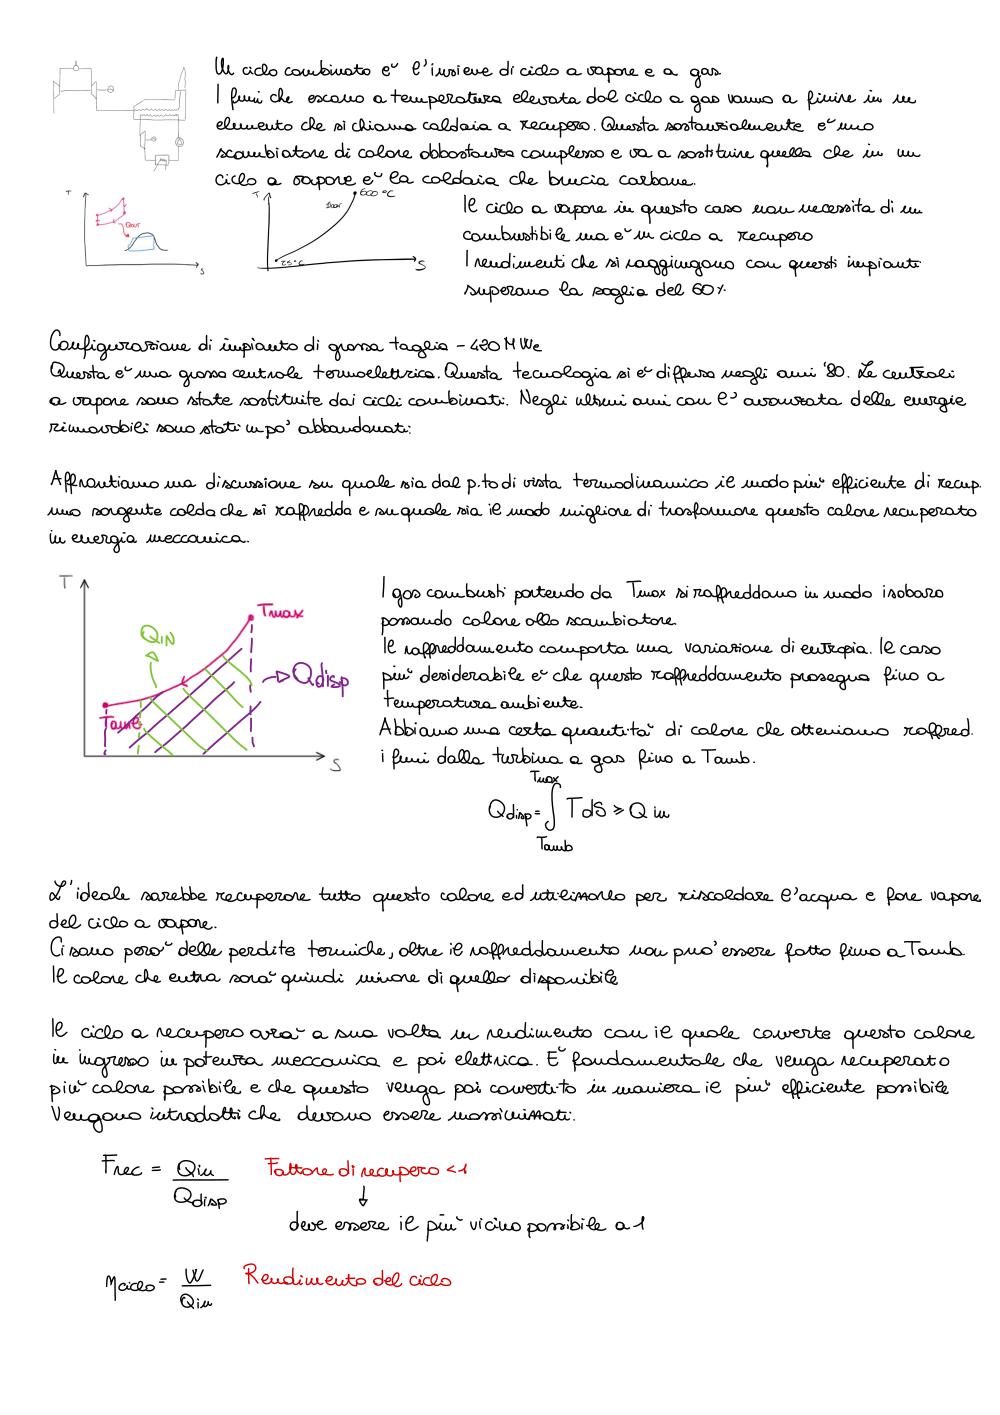 Un ciclo combinato e' l'insieme di ciclo a vapore e a gas
I fumi che escono a temperatura elevata dal ciclo a gas vanno a finire in un
elemento che si chiama caldaia a recupero. Questa sostanzialmente e' uno
scambiatore di calore abbastanza complesso e va a sostituire quella che in un
ciclo a vapore e' la caldaia che brucia carbone.
T
Qout
S
T
600 °C
25°C
S
Il ciclo a vapore in questo caso non necessita di un
combustibile ma e' un ciclo a recupero
I rendimenti che si raggiungono con questi impianti
superano la soglia del 60%
Configurazione di impianto di grossa taglia - 420 MWe
Questa e' una grossa centrale termoelettrica. Questa tecnologia si e' diffusa negli anni '80. Le centrali
a vapore sono state sostituite dai cicli combinati. Negli ultimi anni con l'avanzata delle energie
rinnovabili sono stati un po' abbandonati.
Affrontiamo una discussione su quale sia dal p.to di vista termodinamico il modo piu' efficiente di recup.
una sorgente calda che si raffredda e su quale sia il modo migliore di trasformare questo calore recuperato
in energia meccanica.
T
Tmax
QIN
Qdisp
Tamb
S
I gas combusti partendo da Tmax si raffreddano in modo isobaro
passando calore allo scambiatore.
Il raffreddamento comporta una variazione di entropia. Il caso
piu' desiderabile e' che questo raffreddamento prosegua fino a
temperatura ambiente.
Abbiamo una certa quantita' di calore che otteniamo raffred.
i fumi dalla turbina a gas fino a Tamb.
Tmax
Qdisp = ∫ T dS > Q in
Tamb
L'ideale sarebbe recuperare tutto questo calore ed utilizzarlo per riscaldare l'acqua e fare vapore
del ciclo a vapore.
Ci sono pero' delle perdite termiche, oltre il raffreddamento non puo' essere fatto fino a Tamb.
Il calore che entra sara' quindi minore di quello disponibile
Il ciclo a recupero avra' a sua volta un rendimento con il quale converte questo calore
in ingresso in potenza meccanica e poi elettrica. E' fondamentale che venga recuperato
piu' calore possibile e che questo venga poi convertito in maniera il piu' efficiente possibile
Vengono introdotti che devono essere massimizzati.
Frec = Qin / Qdisp Fattore di recupero <1
deve essere il piu' vicino possibile a 1
ηciclo = W / Qin Rendimento del ciclo